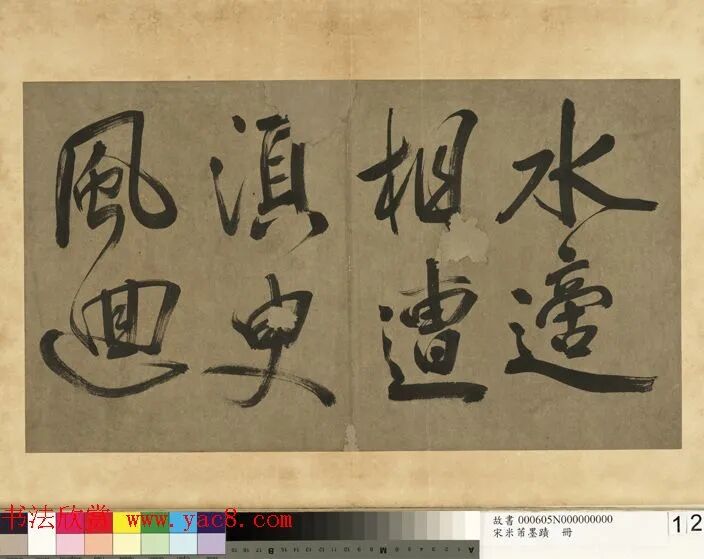 水適
相遭
湏臾
風迴
书法欣赏 www.yac8.com
故書 000605N000000000
宋米芾墨蹟 冊
12